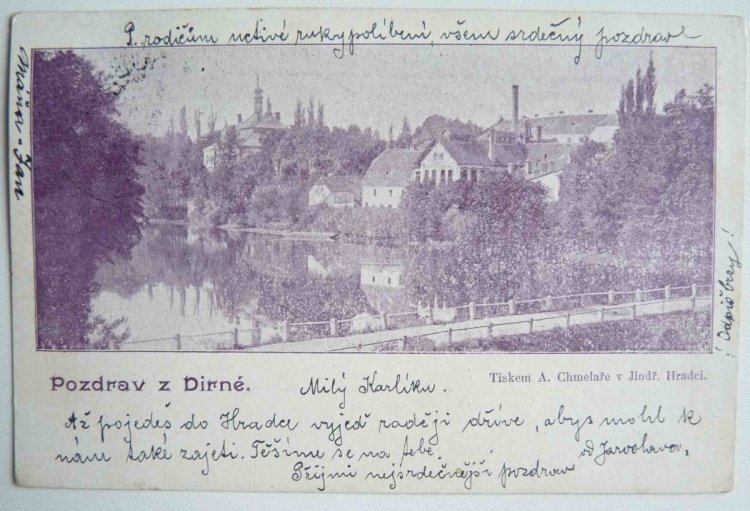 P. rodičům uctivé rukypolíbení, všem srdečný pozdrav!
Máňa - Jan
! Odpiš brzy !
Pozdrav z Dirné.
Tiskem A. Chmelaře v Jindř. Hradci.
Milý Karlíku.
Až pojedeš do Hradce vyjeď raději dříve, abys mohl k
nám také zajeti. Těšíme se na tebe.
od Jaroslava,
Přijmi nejsrdečnější pozdrav